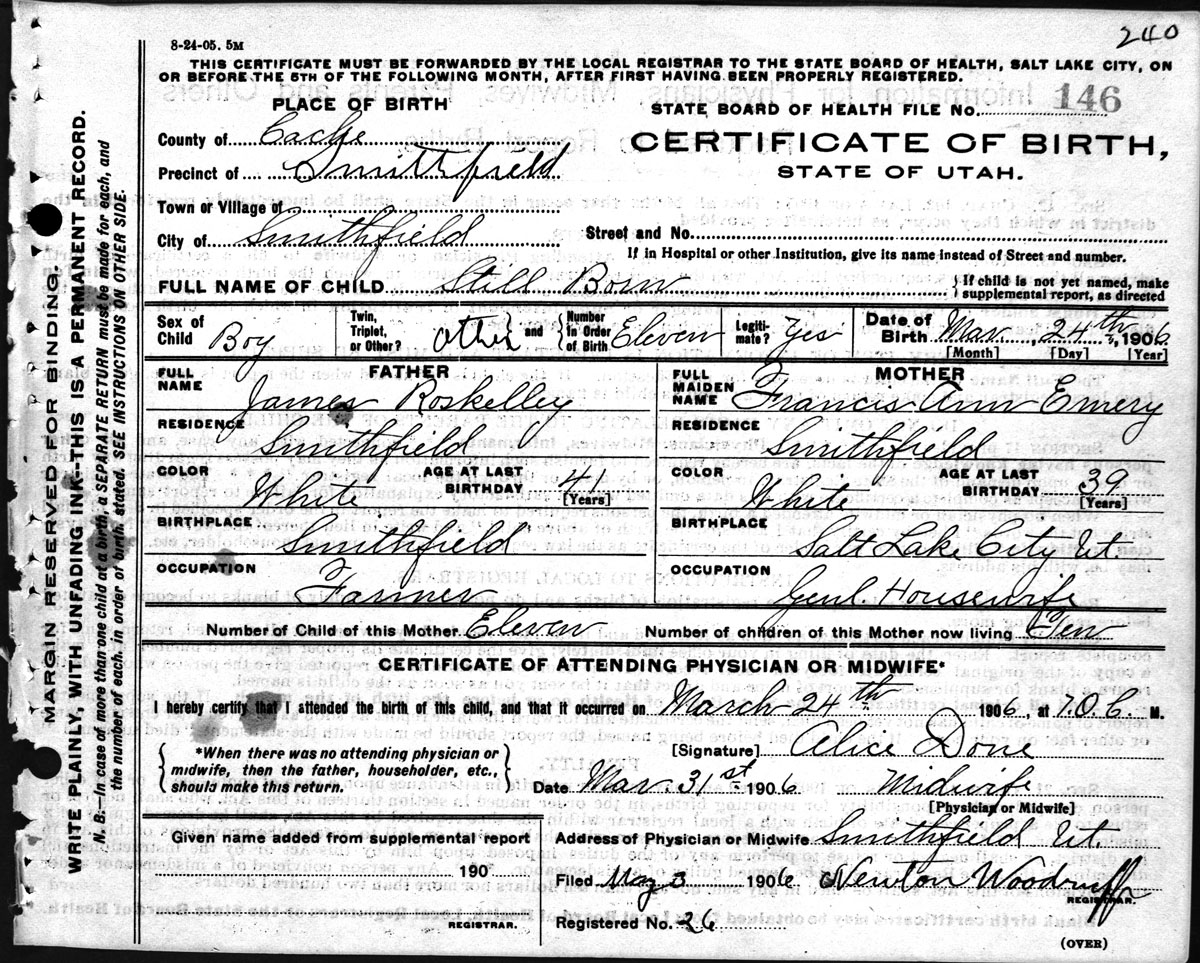 240
8-24-05. 5M
THIS CERTIFICATE MUST BE FORWARDED BY THE LOCAL REGISTRAR TO THE STATE BOARD OF HEALTH, SALT LAKE CITY, ON
OR BEFORE THE 5TH OF THE FOLLOWING MONTH, AFTER FIRST HAVING BEEN PROPERLY REGISTERED.
PLACE OF BIRTH
STATE BOARD OF HEALTH FILE No. 146
County of Cache
CERTIFICATE OF BIRTH,
Precinct of Smithfield
STATE OF UTAH.
Town or Village of
City of Smithfield
Street and No.
If in Hospital or other Institution, give its name instead of Street and number.
FULL NAME OF CHILD Still Born { If child is not yet named, make supplemental report, as directed
Sex of Child Boy
Twin, Triplet, or Other? Other } and { Number in Order of Birth Eleven
Legitimate? Yes
Date of Birth Mar. 24th, 1906
[Month] [Day] [Year]
FATHER
FULL NAME James Roskelley
RESIDENCE Smithfield
COLOR White AGE AT LAST BIRTHDAY 41 [Years]
BIRTHPLACE Smithfield
OCCUPATION Farmer
MOTHER
FULL MAIDEN NAME Francis Ann Emery
RESIDENCE Smithfield
COLOR White AGE AT LAST BIRTHDAY 39 [Years]
BIRTHPLACE Salt Lake City Ut
OCCUPATION Genl. Housewife
Number of Child of this Mother Eleven Number of children of this Mother now living Ten
CERTIFICATE OF ATTENDING PHYSICIAN OR MIDWIFE*
I hereby certify that I attended the birth of this child, and that it occurred on March 24th 1906, at 10.6. M.
{ *When there was no attending physician or
midwife, then the father, householder, etc.,
should make this return. }
[Signature] Alice Done
Date Mar. 31st 1906 Midwife
[Physician or Midwife]
Given name added from supplemental report
190
REGISTRAR.
Address of Physician or Midwife Smithfield Ut.
Filed May 3 1906 Newton Woodruff
REGISTRAR.
Registered No. 26
(OVER)
MARGIN RESERVED FOR BINDING.
WRITE PLAINLY, WITH UNFADING INK--THIS IS A PERMANENT RECORD.
N. B.--In case of more than one child at a birth, a SEPARATE RETURN must be made for each, and
the number of each, in order of birth, stated. SEE INSTRUCTIONS ON OTHER SIDE.